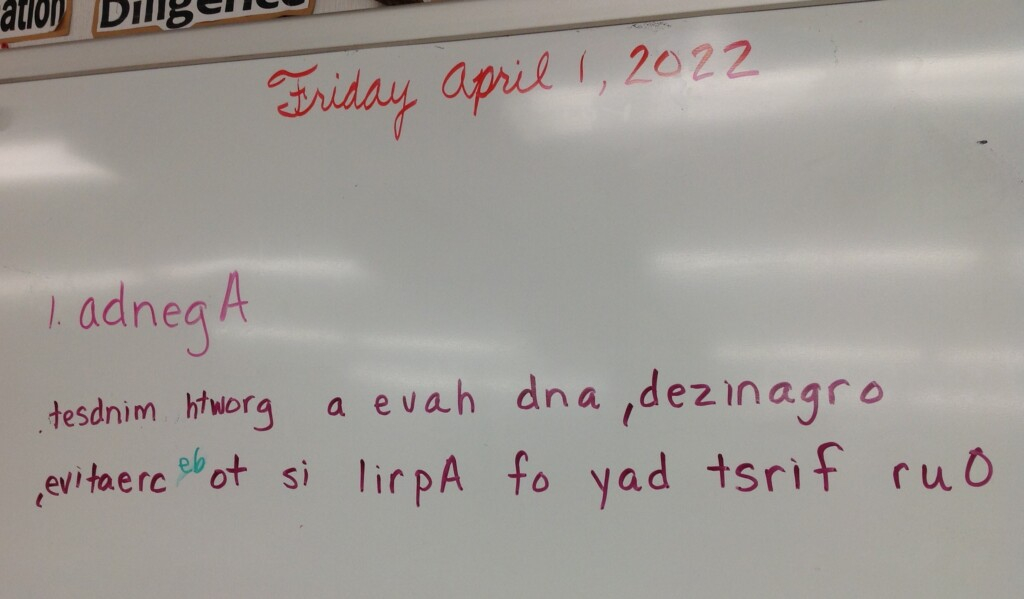 ation Diligence
Friday April 1, 2022
1. adnegA
.tesdnim htworg a evah dna ,dezinagro
,evitaerc eb ot si lirpA fo yad tsrif ruO